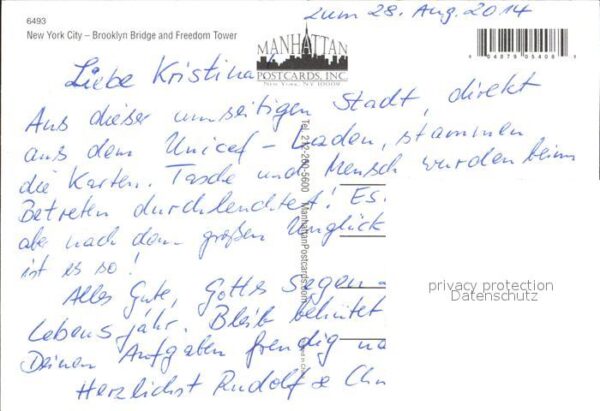 6493
New York City – Brooklyn Bridge and Freedom Tower
zum 28. Aug. 2014
MANHATTAN
POSTCARDS, INC.
NEW YORK, NY 10009
Liebe Kristina
Aus dieser umseitigen Stadt, direkt
aus dem Unicef-Laden, stammen
die Karten. Tasche und Mensch wurden beim
Betreten durchleuchtet! Es
aber nach dem großen Unglück
ist es so!
Alles Gute, Gottes Segen
Lebensjahr. Bleib behütet
Deinen Aufgaben freudig
Herzlichst Rudolf &
Tel. 212-260-5600 ManhattanPostcards.com
privacy protection
Datenschutz